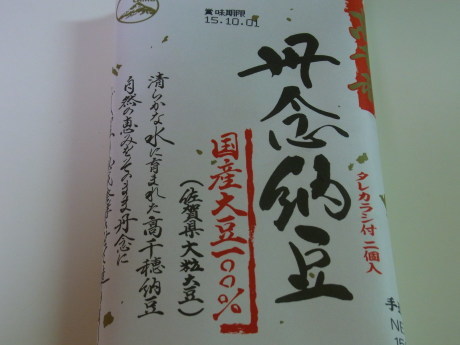 賞味期限
15.10.01
丹念納豆
タレカラシ付 二個入
国産大豆一〇〇%
(佐賀県大粒大豆)
清らかな水に育まれた高千穂納豆
自然の恵みをそのまま丹念に